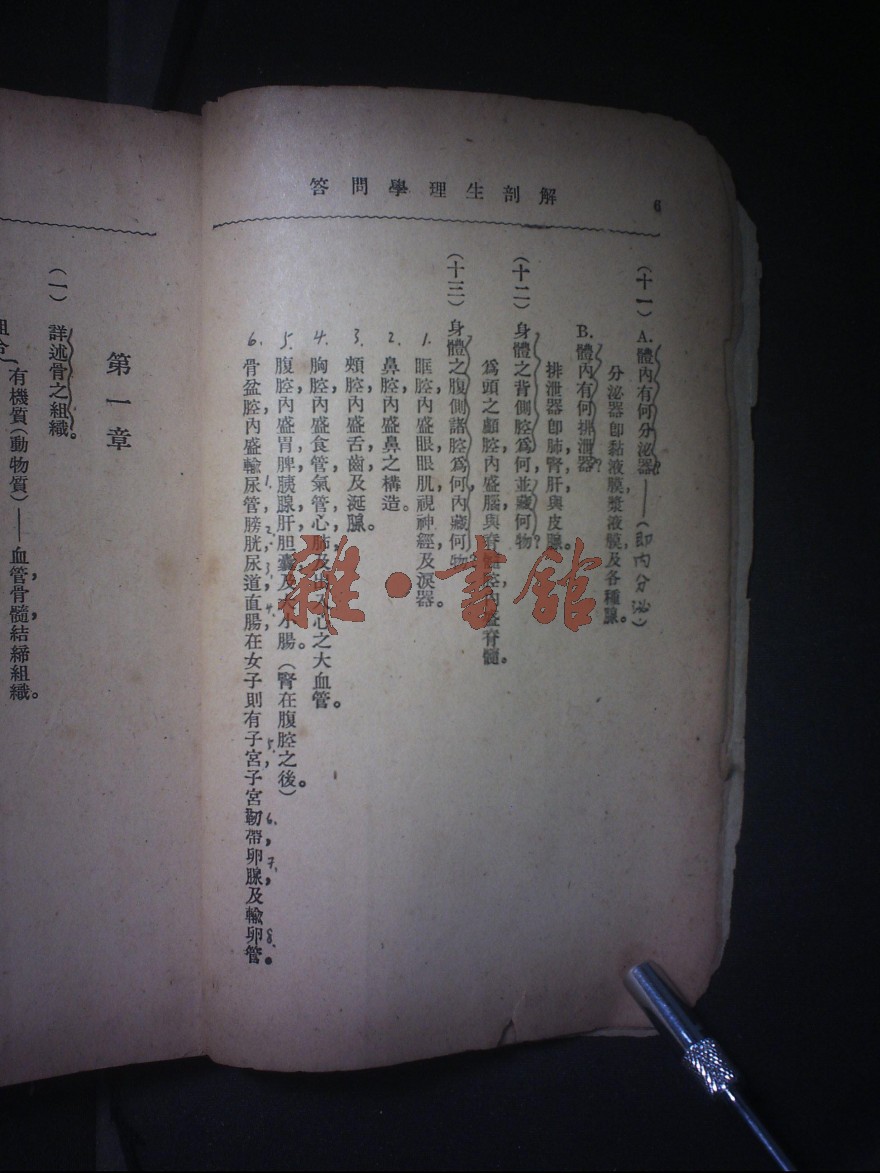 解剖生理學問答
6
(十一) A. 體內有何分泌器?——(即內分泌)
分泌器即黏液膜,漿液膜及各種腺。
B. 體內有何排泄器?
排泄器即肺,腎,肝與皮腺。
(十二) 身體之背側腔爲何,並藏何物?
爲頭之顱腔內盛腦與脊髓腔內盛脊髓。
(十三) 身體之腹側諸腔爲何,內藏何物?
1. 眶腔內盛眼,眼肌,視神經及淚器。
2. 鼻腔內盛鼻之構造。
3. 頰腔內盛舌,齒,及涎腺。
4. 胸腔內盛食管,氣管,心,肺及出入心之大血管。
5. 腹腔內盛胃,脾,胰腺,肝,胆囊及大小腸。(腎在腹腔之後。)
6. 骨盆腔內盛輸尿管,膀胱,尿道,直腸在女子則有子宮,子宮韌帶,卵腺,及輸卵管。
1. 2. 3. 4. 5. 6. 7. 8.
雜·書館
第一章
(一) 詳述骨之組織。
有機質(動物質)——血管,骨髓,結締組織。